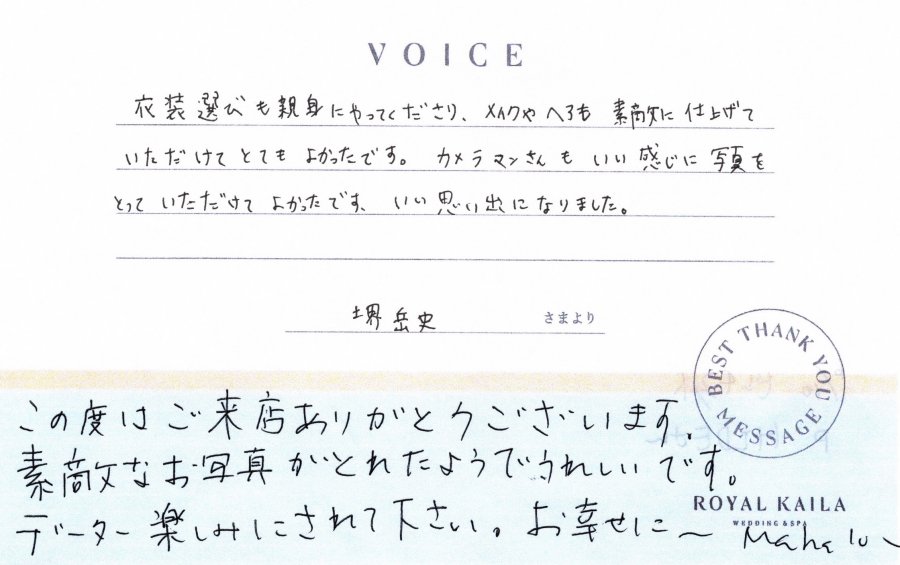 VOICE
衣装選びも親身にやってくださり、メイクやヘアも 素敵に仕上げて
いただけてとてもよかったです。カメラマンさんもいい感じに写真を
とっていただけてよかったです、いい思い出になりました。
堺 岳史 さまより
BEST THANK YOU MESSAGE
この度はご来店ありがとうございます。
素敵なお写真がとれたようでうれしいです。
ROYAL KAILA
WEDDING & SPA
データー楽しみにされて下さい。お幸せに〜 Mahalo〜